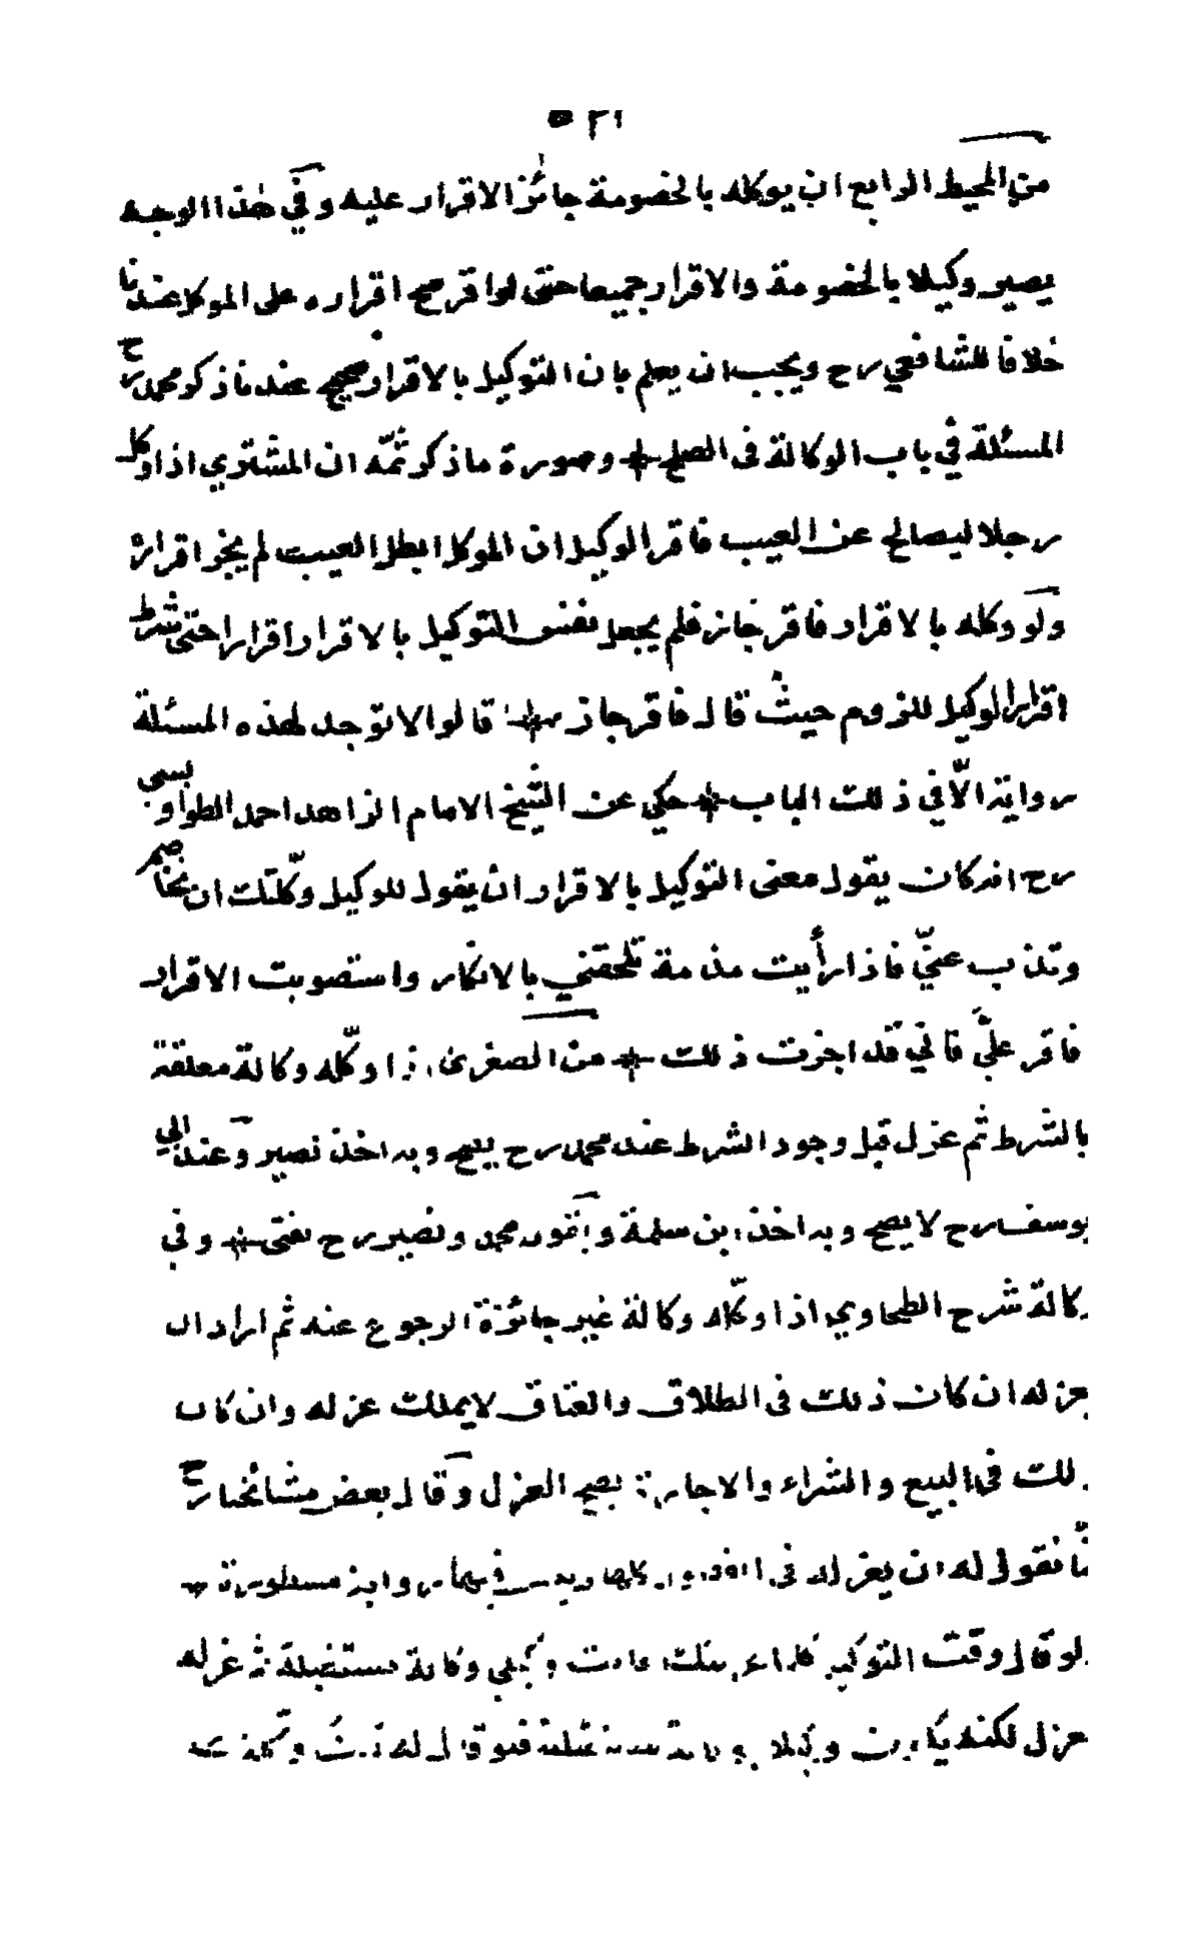 من المحيط الرابع ان يوكله بالخصومة جائز الاقرار عليه وفي هذا الوجه
يصير وكيلا بالخصومة والاقرار جميعا حتى لو اقر صح اقراره على الموكل عندنا
خلافا للشافعي رح ويجب ان يعلم بان التوكيل بالاقرار صحيح عندنا ذكر محمد رح
المسئلة في باب الوكالة فى الصلح وصورة ما ذكر ثمّه ان المشتري اذا وكل
رجلا ليصالح عن العيب فاقر الوكيل ان الموكل ابطل العيب لم يجز اقراره
ولو وكله بالاقرار فاقر جاز فلم يجعل نفس التوكيل بالاقرار اقرارا حتى شرط
اقرار الوكيل للزوم حيث قال فاقر جاز قالوا لا توجد لهذه المسئلة
رواية الّا في ذلك الباب حكي عن الشيخ الامام الزاهد احمد الطواويسى
رح انه كان يقول معنى التوكيل بالاقرار ان يقول للوكيل وكّلتك ان تخاصم
وتذب عنيّ فاذا رأيت مذمة تلحقني بالانكار واستصوبت الاقرار
فاقر عليّ فاني قد اجزت ذلك من الصغرى اذا وكّله وكالة معلقة
بالشرط ثم عزل قبل وجود الشرط عند محمد رح يصح وبه اخذ نصير وعند ابي
يوسف رح لا يصح وبه اخذ ابن سلمة وبقول محمد ونصير رح نفتى وفي
وكالة شرح الطحاوي اذا وكّله وكالة غير جائزة الرجوع عنه ثم اراد ان
يعزله ان كان ذلك فى الطلاق والعتاق لا يملك عزله وان كان
ذلك في البيع والشراء والاجارة يصح العزل وقال بعض مشائخنا رح
نقول له ان يعزله فى كلها وليس فيها رواية مسطورة
ولو قال وقت التوكيل كلما عزلتك فانت وكيلي وكالة مستقبلة ثم عزله